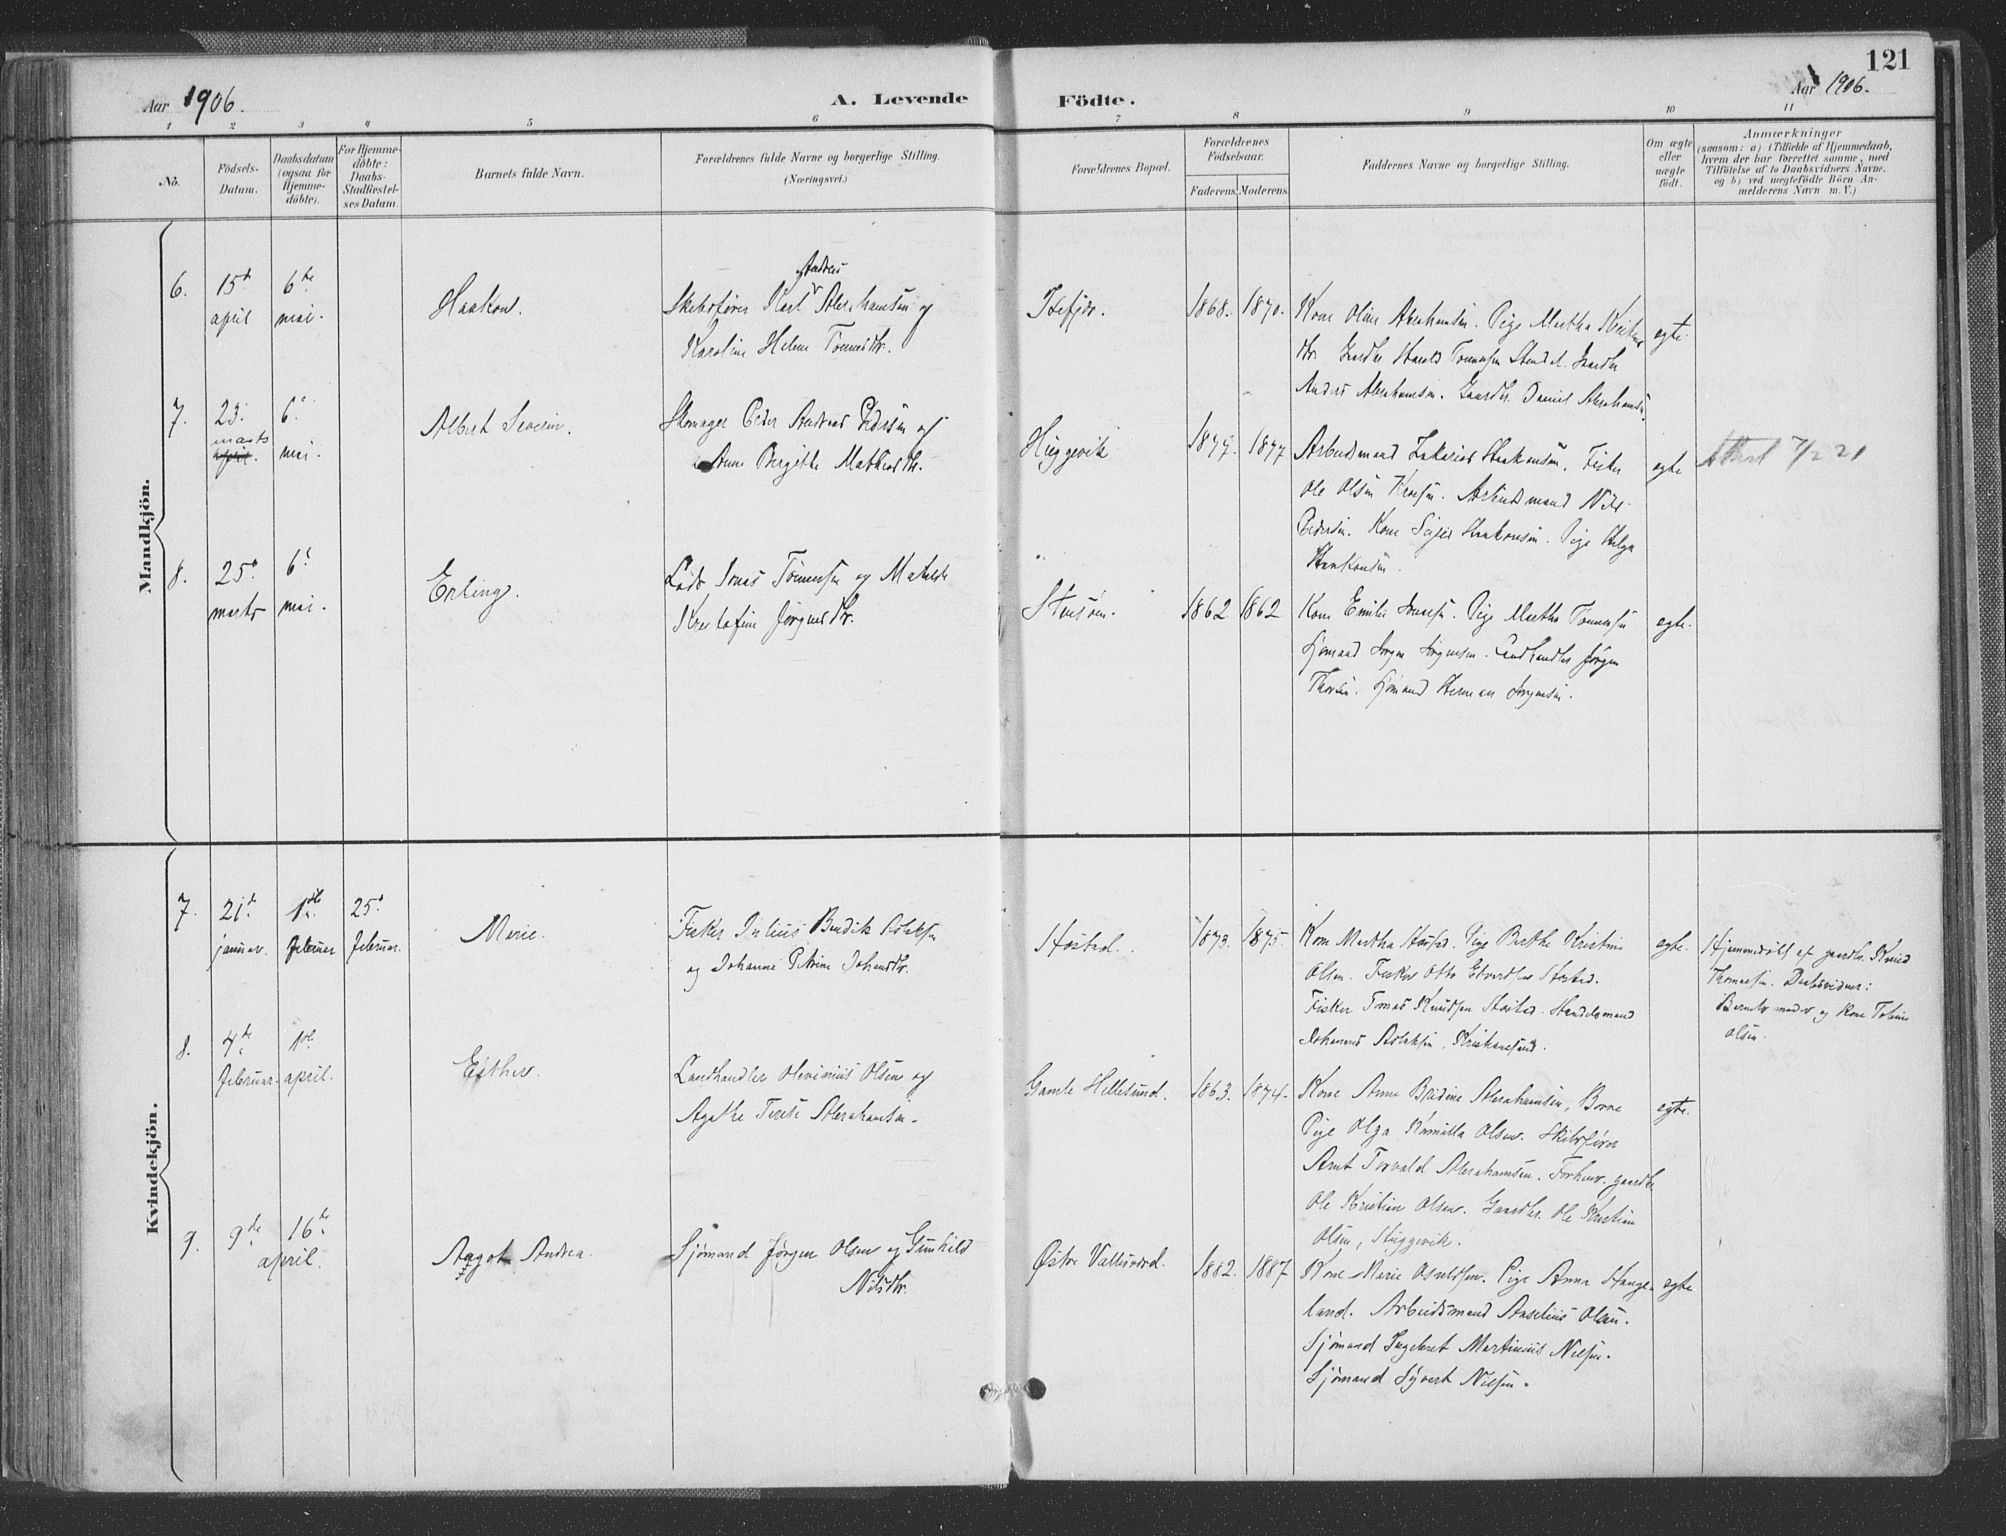 121
Aar 1906.
A. Levende Födte.
Aar 1906.
1 2 3 4 5 6 7 8 9 10 11
No.
Födsels-
Datum.
Daabsdatum
(ogsaa for
Hjemme-
döbte).
For Hjemme-
döbte:
Daabs-
Stadfæstel-
ses Datum.
Barnets fulde Navn.
Forældrenes fulde Navne og borgerlige Stilling.
(Næringsvei.)
Forældrenes Bopæl.
Forældrenes
Födselsaar.
Faderens. Moderens.
Faddernes Navne og borgerlige Stilling.
Om ægte
eller
uægte
födt.
Anmærkninger
(saasom: a) i Tilfælde af Hjemmedaab,
hvem der har forrettet samme, med
Tilföielse af to Daabsvidners Navne,
og b) ved uægtefödte Börn An-
melderens Navn m. V.)
Mandkjön.
6.
15de
april
6te
mai.
Haakon.
Andreas
Skibsfører Karl Abrahamsen og
Karoline Helene Tønnesdtr.
1868. 1870.
Kone Oline Abrahamsen. Pige Martha
Gaardbr. Harald Tønnesen
Anders Abrahamsen. Gaardbr. Daniel Abrahamsen.
egte.
7.
23.
marts
april.
6.
mai.
Albert Severin.
Peder Andreas Pedersen og
Anne Birgithe Mathiasdtr.
Huggevik
1877. 1877
Arbeidsmand Zakarias Haakonsen. Fisker
Ole Olsen. Arbeidsmand Nils
Pedersen. Kone Haakonsen. Pige Helga
Haakonsen.
egte
7/2 21
8.
25.
marts
6.
mai.
Erling.
Lods Jonas Tønnesen og Mathilde
Jørgensdtr.
1862 1862
Kone Emilie. Pige Martha Tønnesen
Sjømand Jørgen Jørgensen. Landhandler Jørgen
Sjømand Herman Jørgensen.
egte.
Kvindekjön.
7.
21de
januar.
1ste
februar
25.
februar.
Marie.
Fisker Julius Bendik Aslaksen
og Johanne Petrine Johansdtr.
1873. 1875.
Kone Martha. Pige Berthe Kristine
Olsen. Fisker Otto
Fisker Tomas Knudsen. Handelsmand
Johannes Aslaksen, Kristiansund.
egte.
Hjemmedøbt af gaardbr. Knud
Thomassen. Daabsvidner:
Barnets moder og kone Tobine
Olsen.
8.
4de
februar.
1ste
april.
Esther.
Landhandler Olevinius Olsen og
Agathe Terese Abrahamsen.
Gamle Hellesund.
1863. 1874.
Kone Anne Abrahamsen, Borøe
Pige Olga Kamilla Olsen. Skibsfører
Arnt Torvald Abrahamsen. Forhenv. gaardbr.
Ole Kristian Olsen. Gaardbr. Ole Kristian
Olsen, Huggevik.
egte.
9.
9de
16de
april.
Aagot Andrea.
Sjømand Jørgen Olsen og Gunhild
Nilsdtr.
Østre Vallesverd.
1882. 1887
Kone Marie Osuldsen. Pige Anna Hauge-
land. Arbeidsmand Anselius Olsen.
Sjømand Ingebret Martinius Nilsen.
Sjømand Syvert Nilsen.
egte